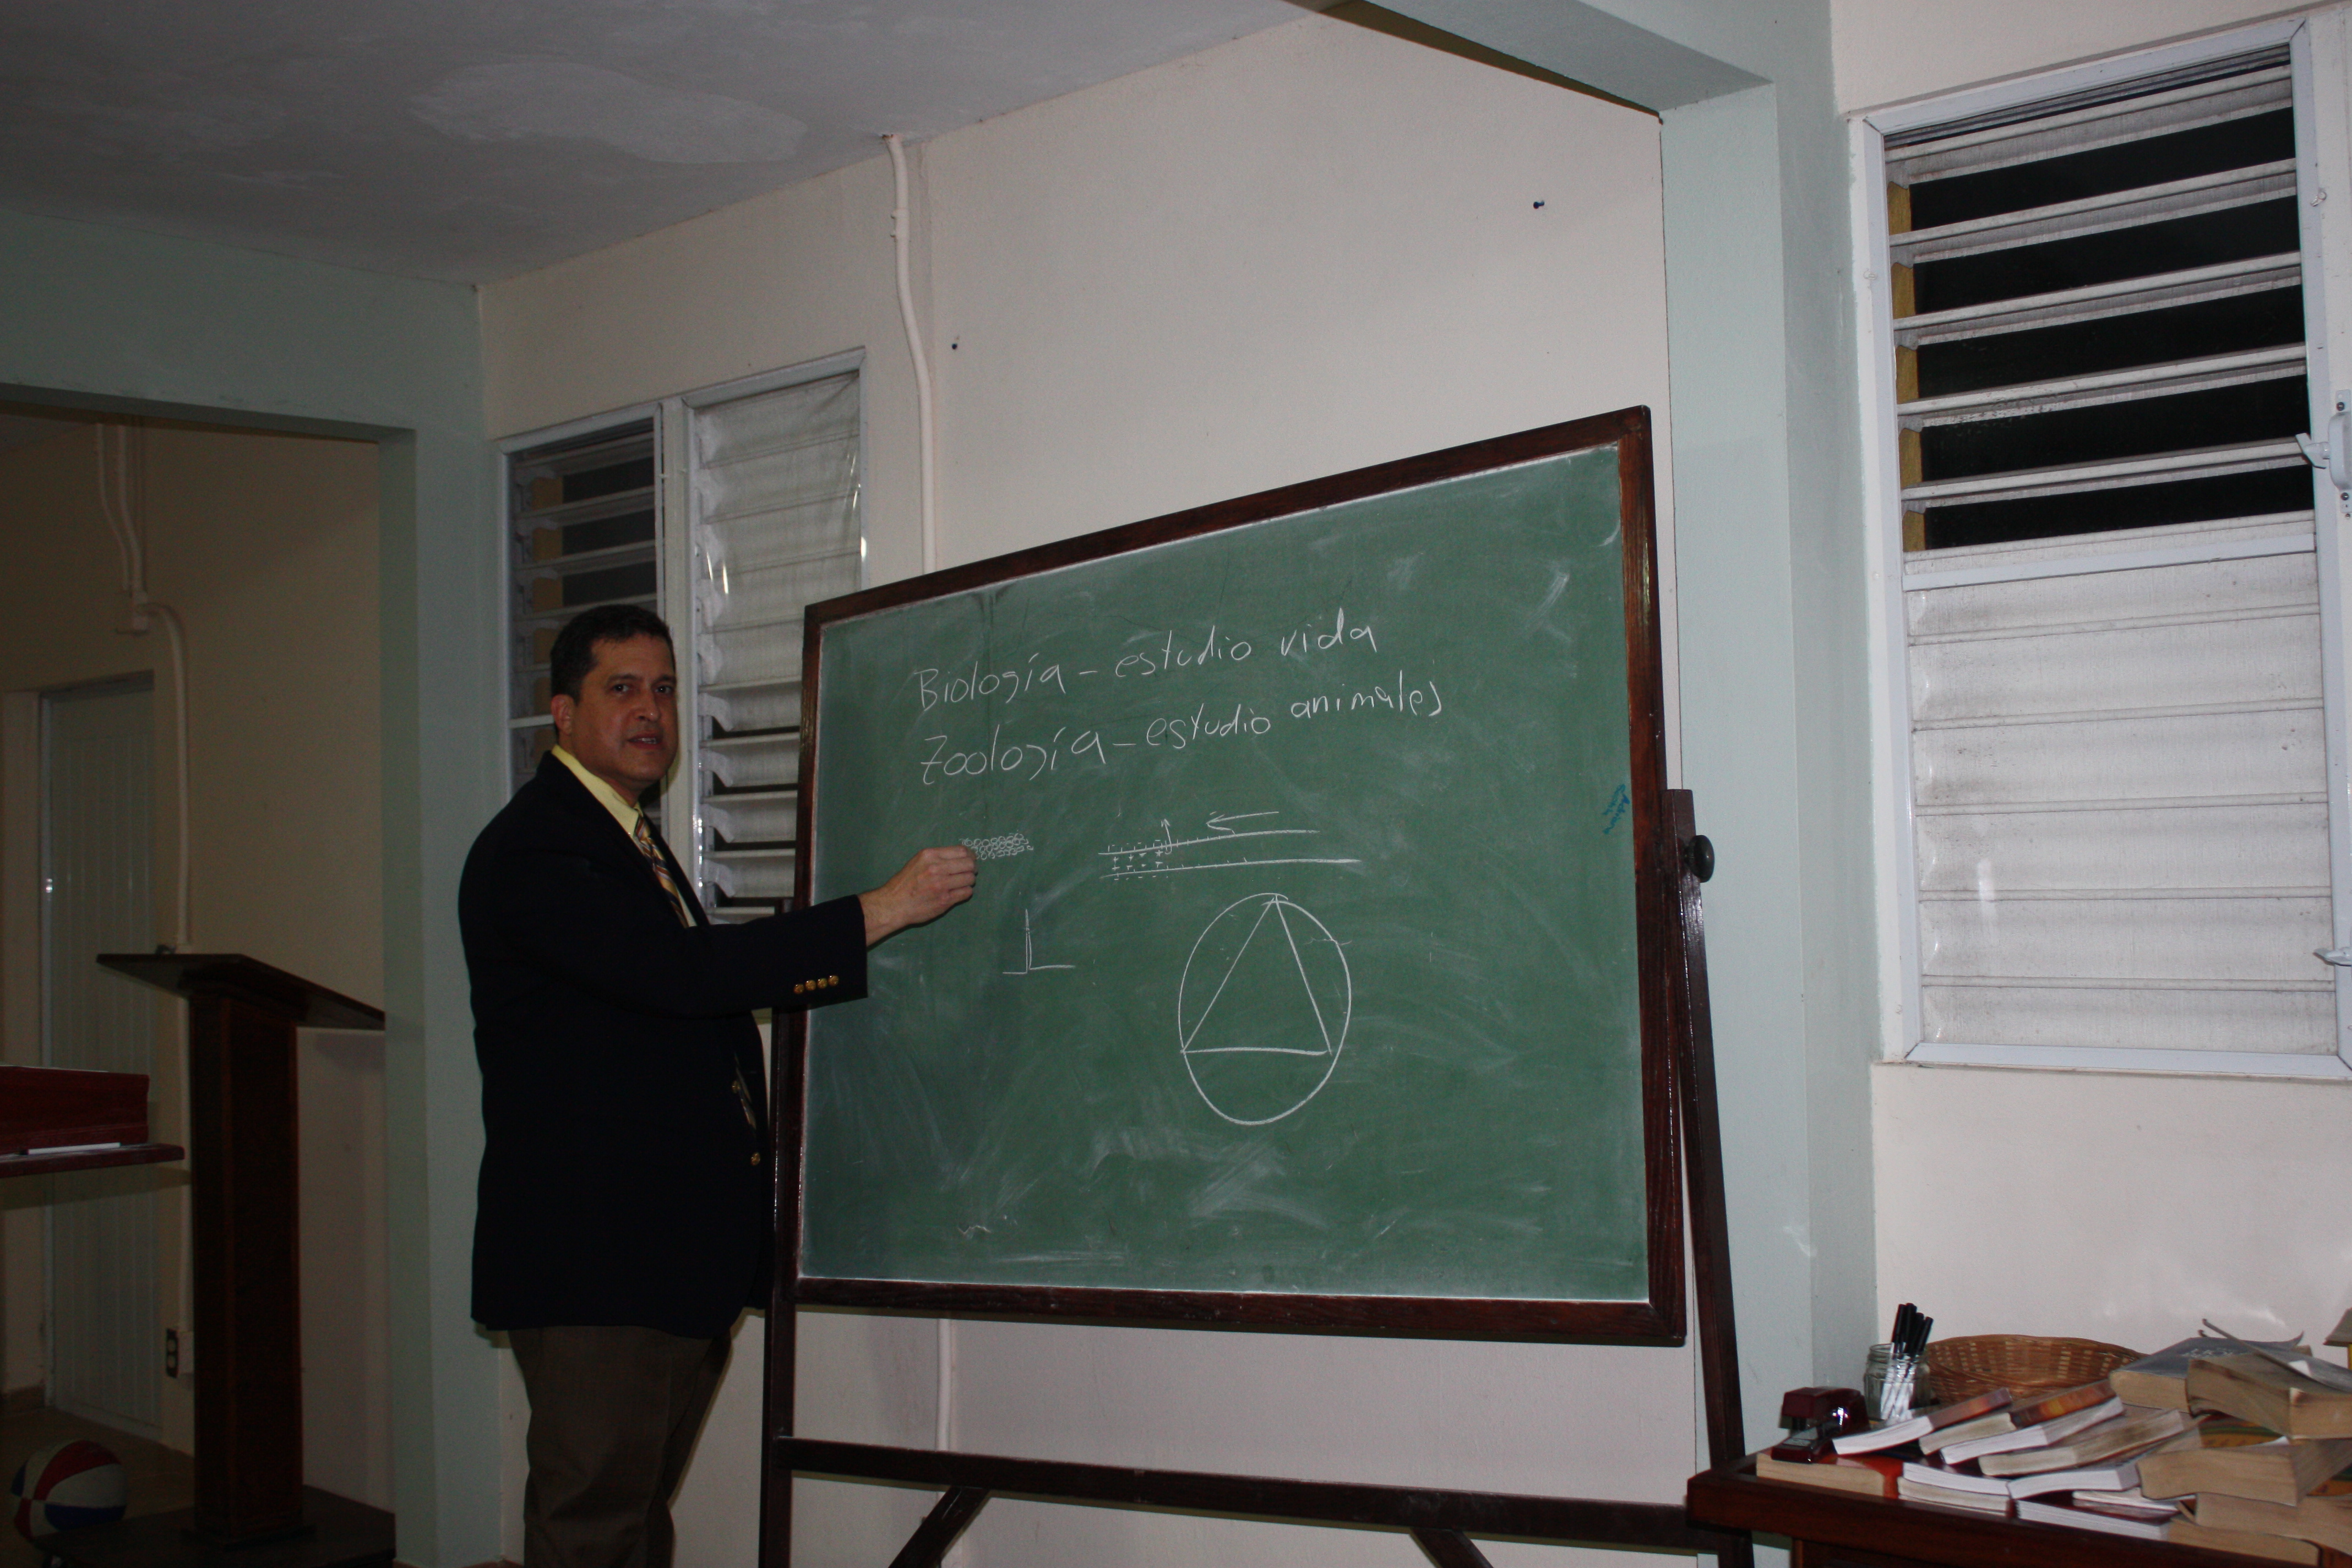 Biología - estudio vida
Zoología - estudio animales